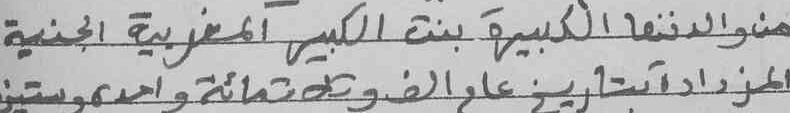 من والدتها الكبيرة بنت الكبير المغربية الجنسية
المزدادة بتاريخ عام الف وثلاثمائة واحد وستين